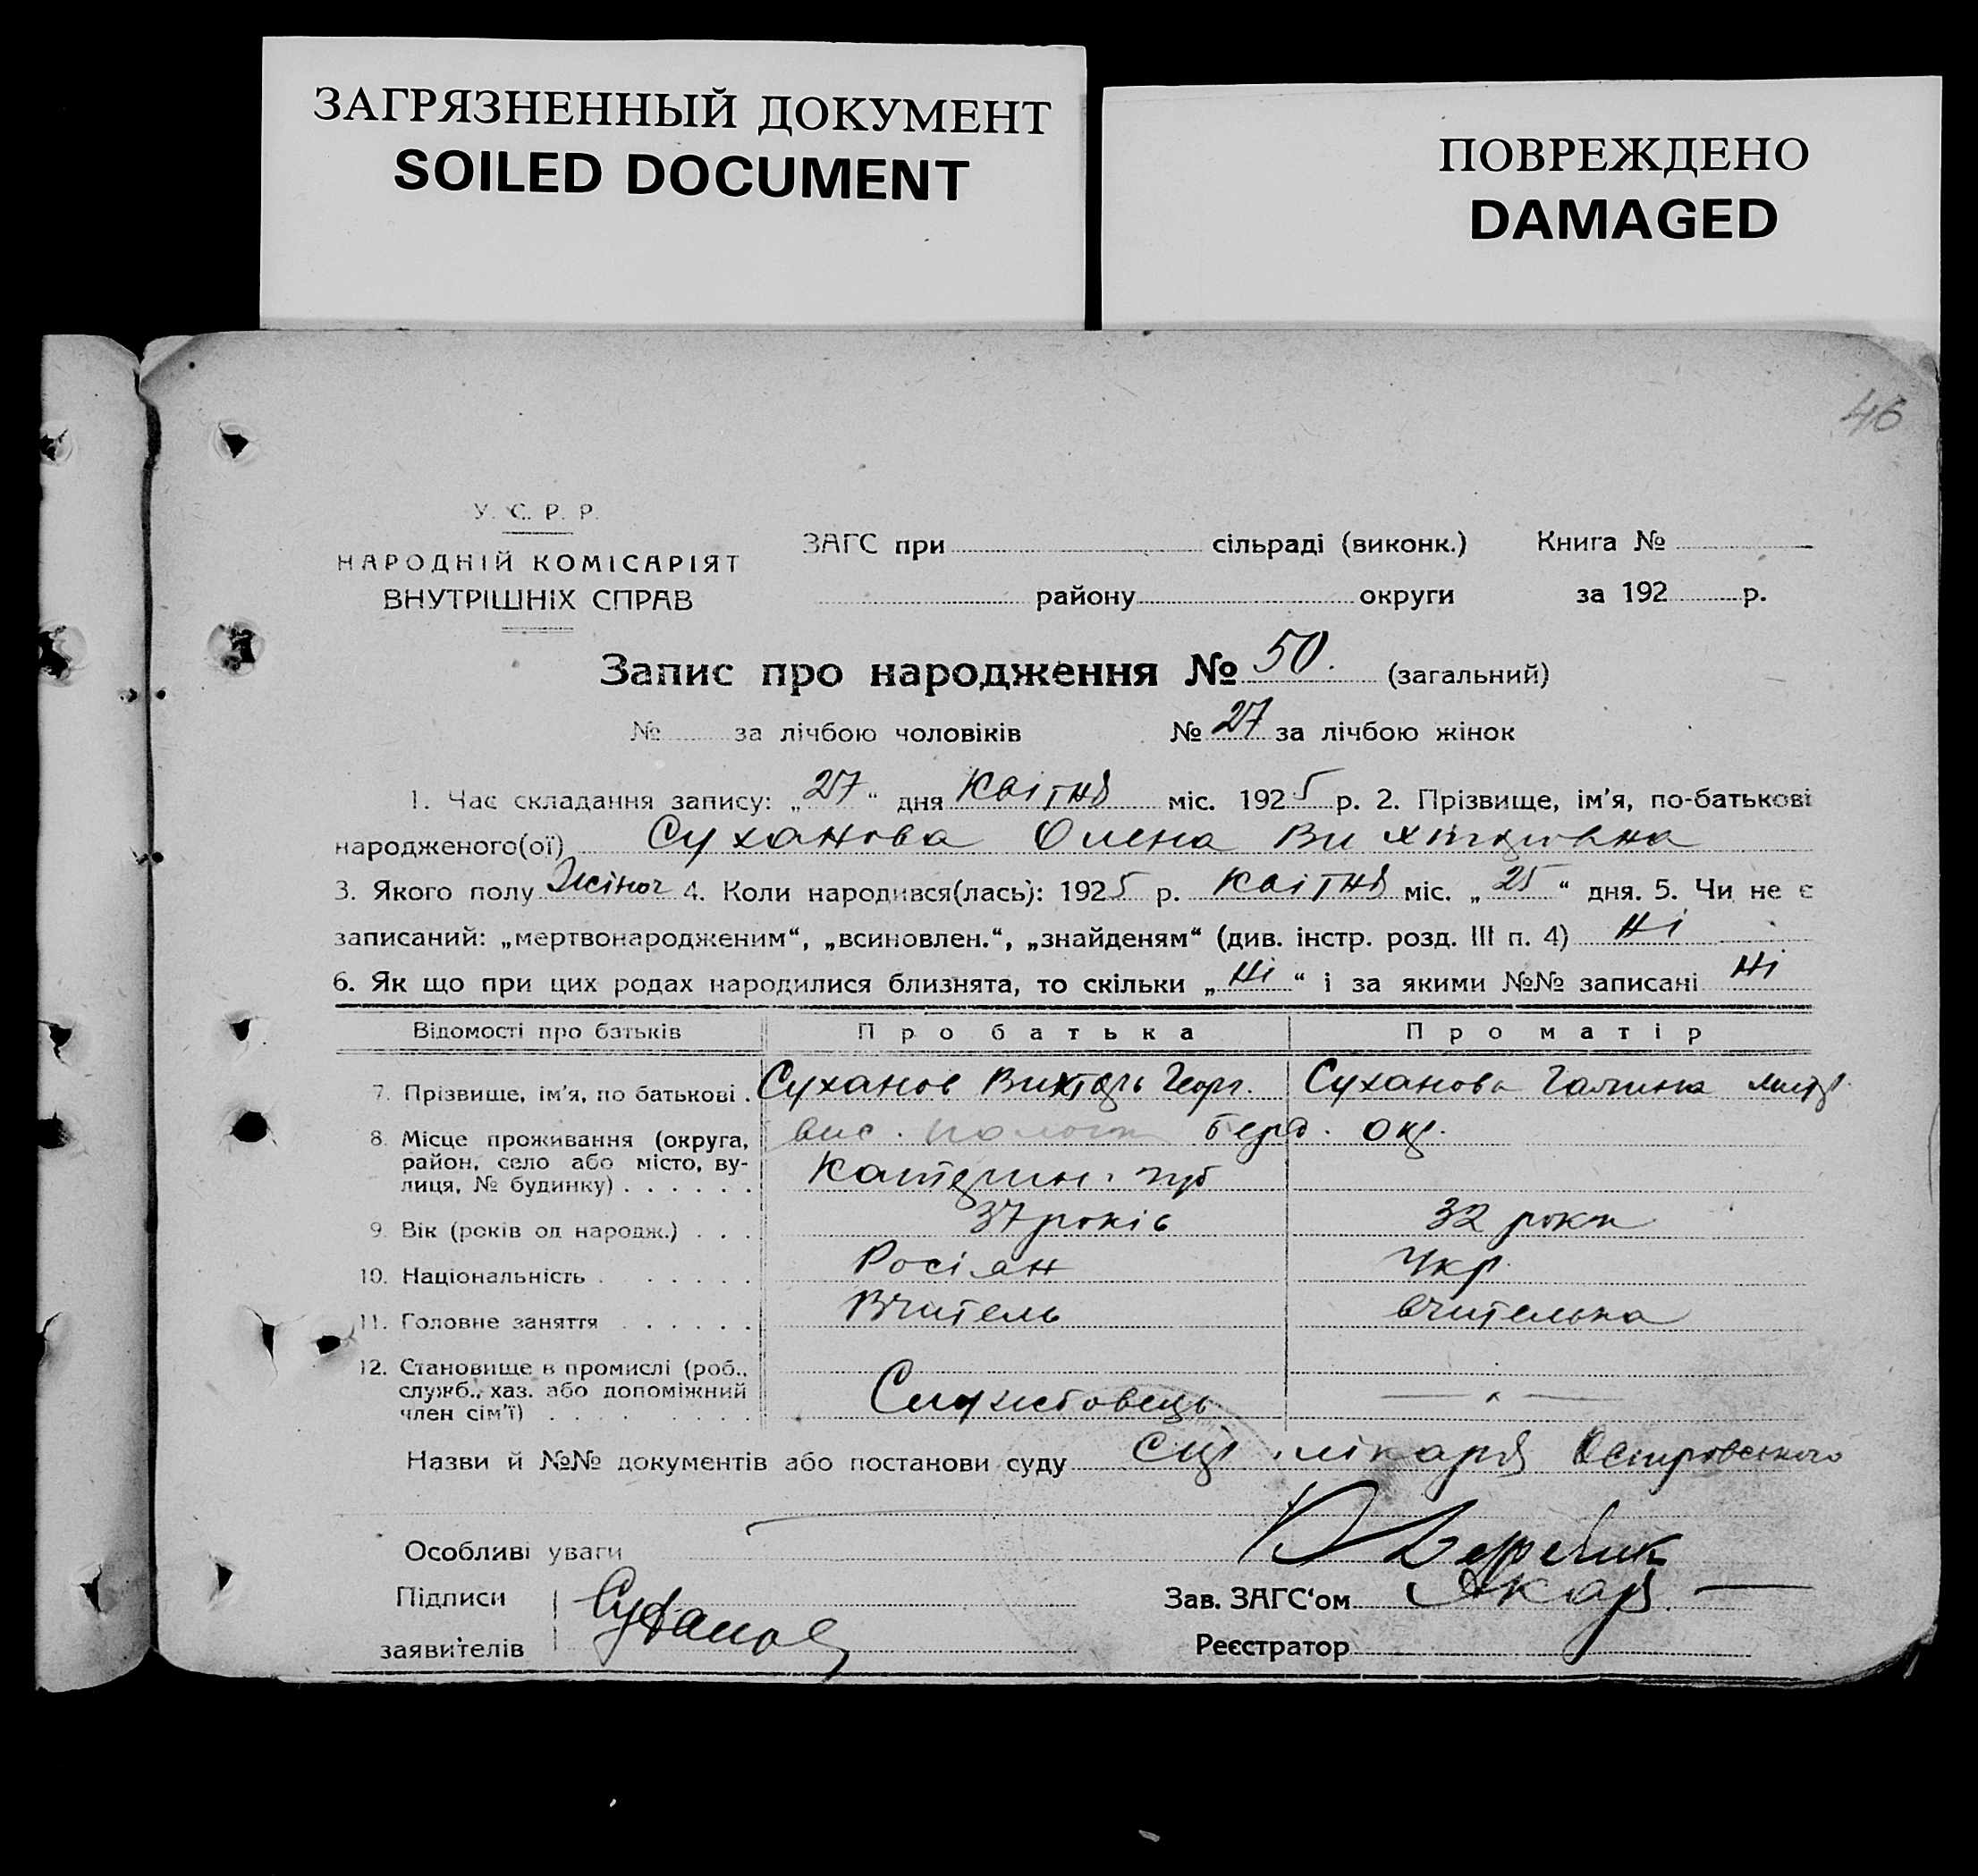 ЗАГРЯЗНЕННЫЙ ДОКУМЕНТ
SOILED DOCUMENT
ПОВРЕЖДЕНО
DAMAGED
46
У. С. Р. Р.
НАРОДНІЙ КОМІСАРІЯТ
ВНУТРІШНІХ СПРАВ
ЗАГС при сільраді (виконк.) Книга №
району округи за 192 р.
Запис про народження № 50. (загальний)
№ за лічбою чоловіків № 27 за лічбою жінок
1. Час складання запису: „27“ дня Квітня міс. 1925 р. 2. Прізвище, ім'я, по-батькові
народженого(ої) Суханова Олена
3. Якого полу Жіноч 4. Коли народився(лась): 1925 р. Квітня міс. „25“ дня. 5. Чи не є
записаний: „мертвонародженим“, „всиновлен.“, „знайденям“ (див. інстр. розд. III п. 4) Ні
6. Як що при цих родах народилися близнята, то скільки „Ні“ і за якими №№ записані Ні
Відомості про батьків Про батька Про матір
7. Прізвище, ім'я, по батькові . Суханов Виктор Георг. Суханова Галина
8. Місце проживання (округа, район, село або місто, вулиця, № будинку) . . . . . . вис. Пологи Берд. окр.
Катерин. губ
9. Вік (років од народж.) . . . 37 років 32 роки
10. Національність . . . . . . Росіян Укр.
11. Головне заняття . . . . . . Вчитель вчителька
12. Становище в промислі (роб., служб., хаз. або допоміжний член сім'ї) . . . . . . . . Службовець — " —
Назви й №№ документів або постанови суду лікаря Островського
Особливі уваги
Підписи Зав. ЗАГС'ом
заявителів Суханов Реєстратор